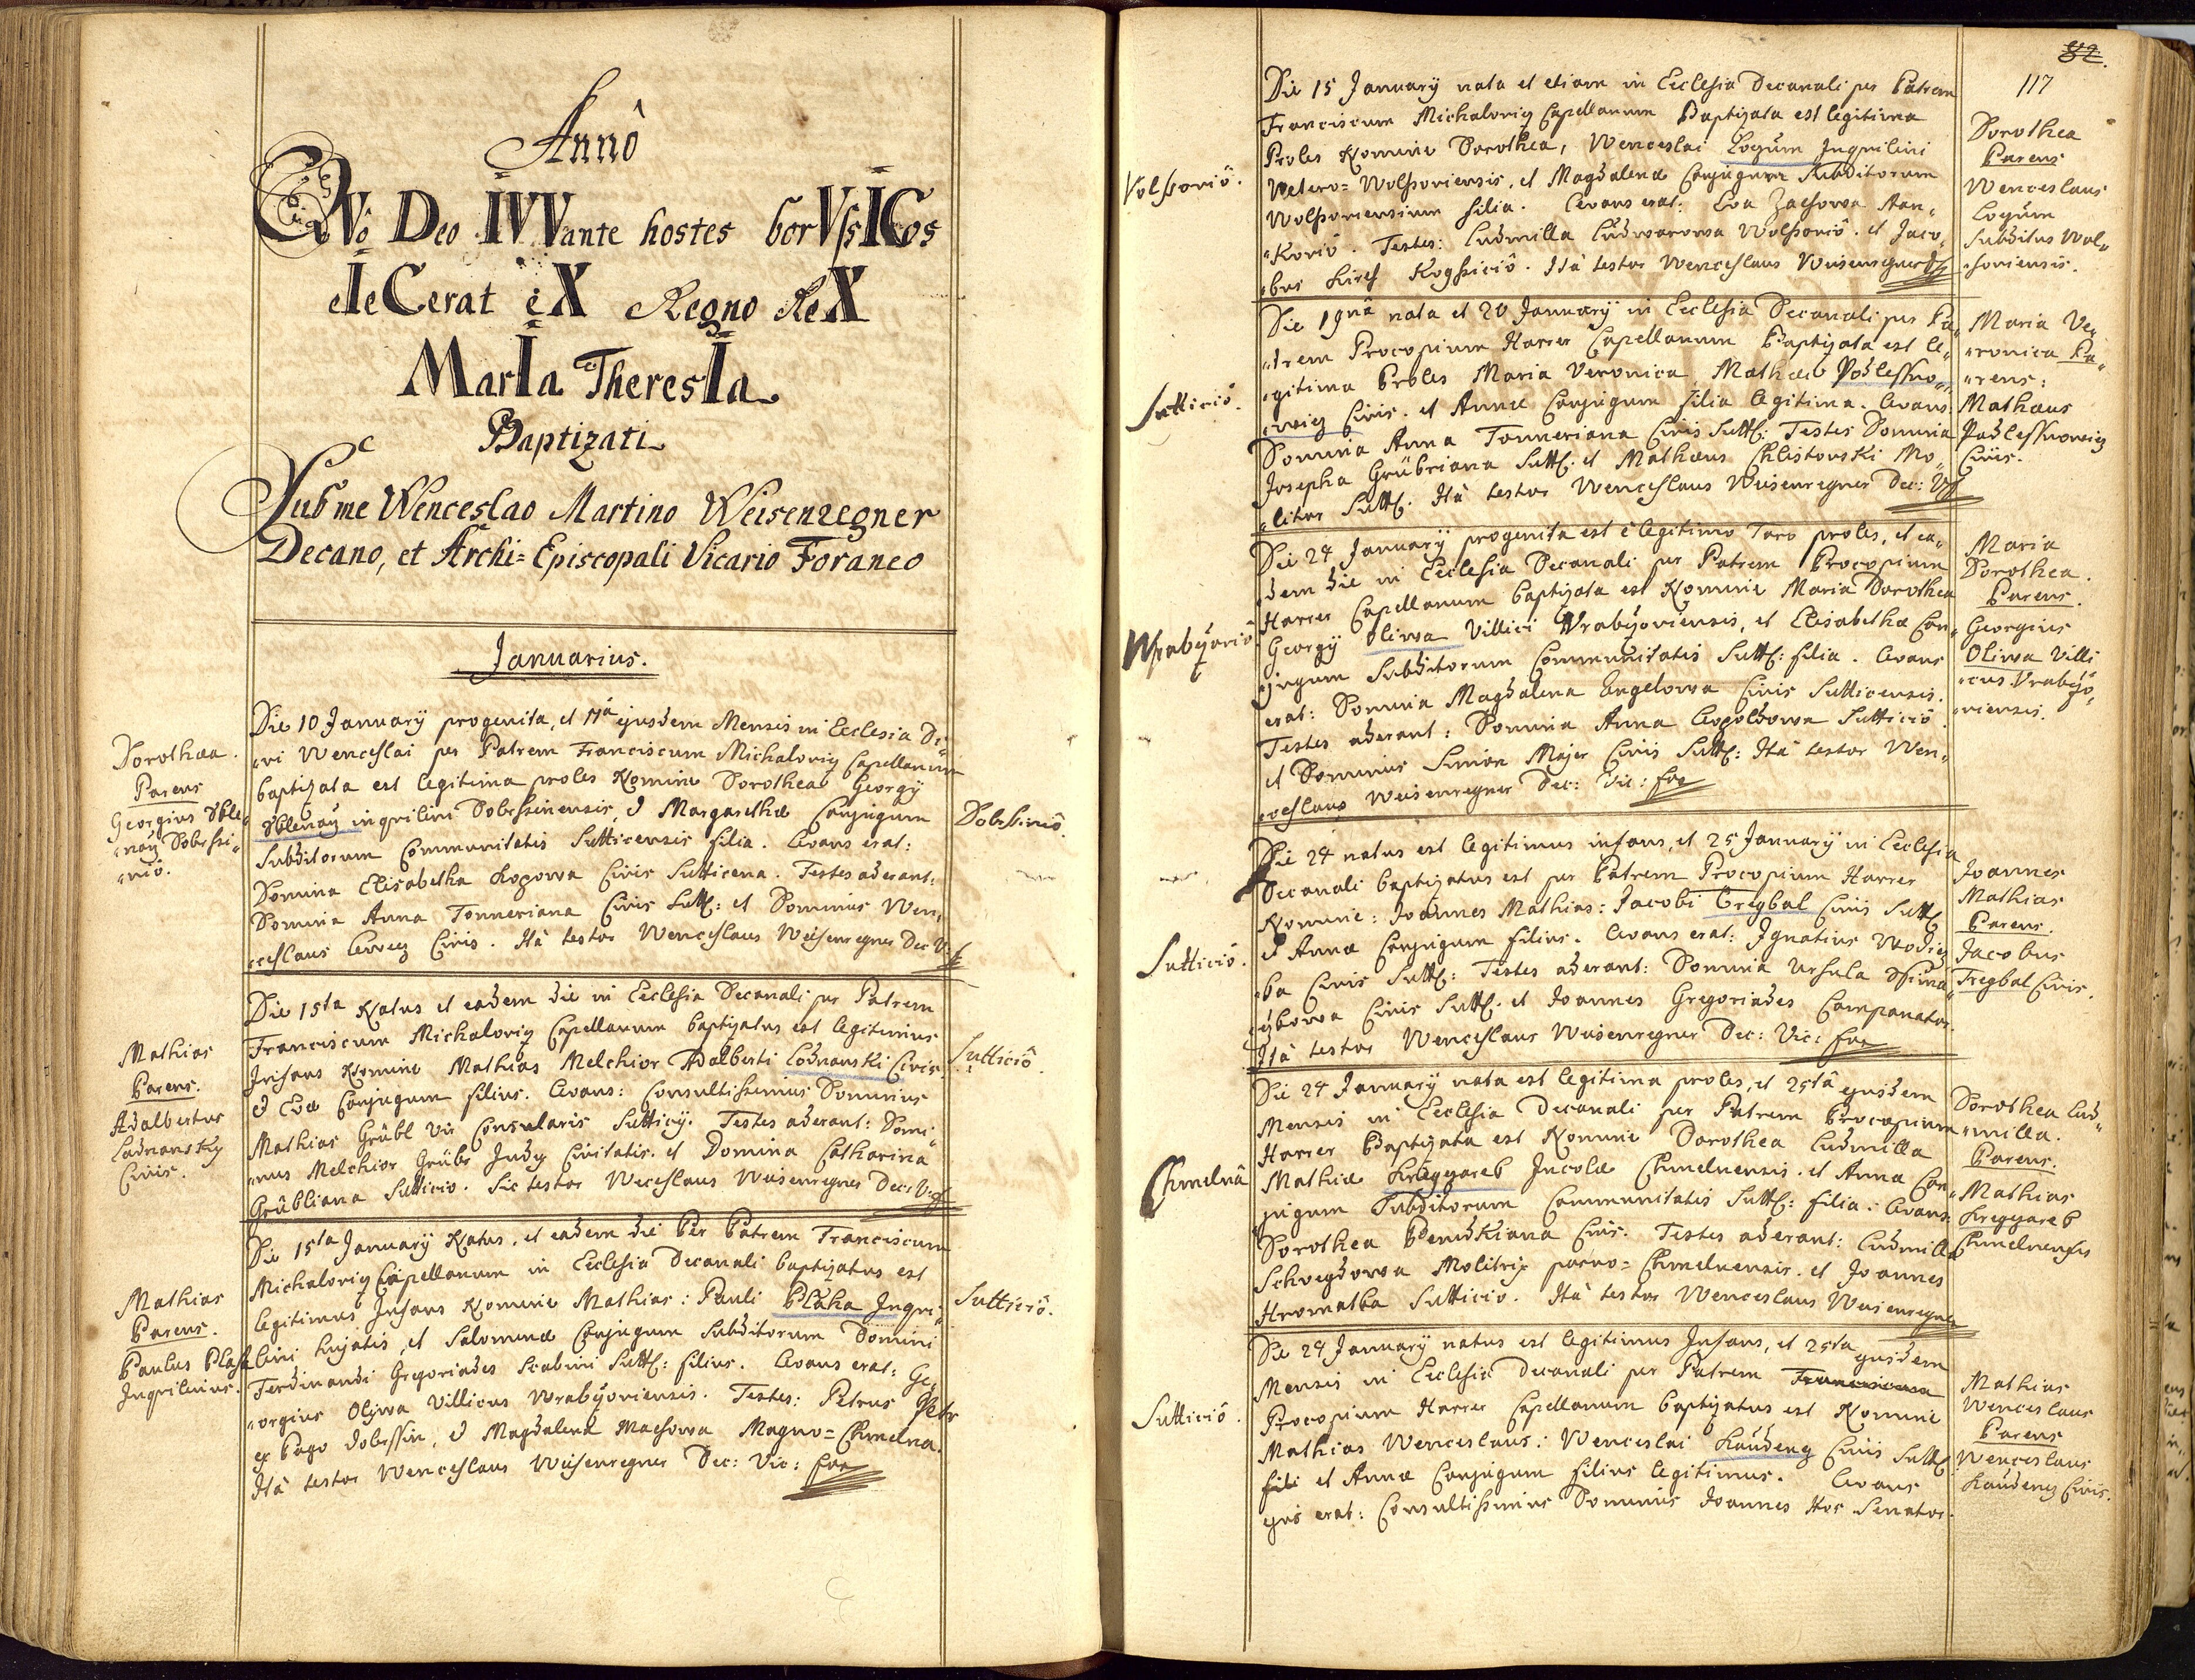 Annô
QVô Deo IVVante hostes borVßICos
eIeCerat èX Regno ReX
MarIa TheresIa
Baptizati
Sub me Wenceslao Martino Weisenregner
Decano, et Archi-Episcopali Vicario Foraneo
Januarius.
Dorothæa.
Parens
Georgius
Die 10 Januarÿ progenita, et 11â ejusdem Mensis in Ecclesia Di„
„vi Wenceslai per Patrem Franciscum Michalovicz Capellanum
baptizata est legitima proles Nomine Dorothea Georgÿ
inquilini Dobrssinensis, et Margarethæ Conjugum
Subditorum Communitatis Sutticensis filia. Levans erat:
Domina Elisabetha Kozowa Civis Sutticena. Testes aderant:
Domina Anna Tonneriana Civis Sutt: et Dominus Wen„
„ceslaus Civis. Ità testor Wenceslaus Weisenregner Dec: V:
Dobrssiniô.
Mathias
Parens.
Adalbertus
Ladnansky
Civis.
Die 15ta Natus et eadem die in Ecclesia Decanali per Patrem
Franciscum Michalovicz Capellanum baptizatus est legitimus
Infans Nomine Mathias Melchior Adalberti Lodnanski Civis
et Evæ Conjugum filius. Levans: Consultissimus Dominus
Mathias Grübl Vir Consularis Sutticÿ. Testes aderant: Domi„
„nus Melchior Grübr Judex Civitatis. et Domina Catharina
Grübliana Sutticio. Sic testor Weceslaus Weisenregner Dec: V:
Sutticiô.
Mathias
Parens.
Paulus
Inquilinus.
Die 15ta Januarÿ Natus, et eadem die Per Patrem Franciscum
Michalovicz Capellanum in Ecclesia Decanali baptizatus est
legitimus Infans Nomine Mathias: Pauli Plaha Inqui„
lini hujatis, et Salomenæ Conjugum Subditorum Domini
Ferdinandi Gregoriades Scabini Sutt: filius. Levans erat: Ge„
„orgius Oliwa Villicus Wrabÿoviensis. Testes: Petrus Petr
ex Pago Dobrssin, et Magdalena Machowa Magno-Chmelna.
Ità testor Wenceslaus Weisenregner Dec: Vic: For
Sutticiô.
82.
117
Volssoviô.
Die 15 Januarÿ nata et etiam in Ecclesia Decanali per Patrem
Franciscum Michalovicz Capellanum Baptizata est legitima
Proles Nomine Dorothea, Wenceslai Logüm Inquilini
Vetero-Wolssoviensis, et Magdalenæ Conjugum Subditorum
Wolssoviensium filia. Levans erat: Eva Zachowa Nan„
„koviô. Testes: Ludmilla Wolssoviô. et Jaco„
„bus Rogssiciô. Ità testor Wenceslaus Weisenregner
Dorothea
Parens
Wenceslaus
Logüm
Subditus Wol„
„ssoviensis.
Sutticiô.
Die 19nâ nata et 20 Januarÿ in Ecclesia Decanali per Pa„
„trem Procopium Harrer Capellanum Baptizata est le„
„gitima Proles Maria Veronica, Mathæi Podlessno„
„wicz Civis. et Annæ Conjugum filia legitima. Levans:
Domina Anna Tonneriana Civis Sutt: Testes Domina
Josepha Grübriana Sutt: et Mathæus Chlistovski Mo„
„litor Sutt: Ità testor Wenceslaus Weisenregner Dec: V:
Maria Ve„
„ronica Pa„
„rens:
Mathæus
Podlessnovicz
Civis.
Wrabÿoviô
Die 24 Januarÿ progenita est è legitimo Toro proles, et ea„
„dem die in Ecclesia Decanali per Patrem Procopium
Harrer Capellanum baptizata est Nomine Maria Dorothea
Georgÿ Oliwa Villici Wrabÿoviensis, et Elisabethæ Con„
„jugum Subditorum Communitatis Sutt: filia. Levans
erat: Domina Magdalena Engelowa Civis Sutticensis.
Testes aderant: Domina Anna Leopoldowa Sutticiô.
et Dominus Simon Majer Civis Sutt: Ità testor Wen„
„ceslaus Weisenregner Dec: Vic: For
Maria
Dorothea.
Parens.
Georgius
Oliwa Villi
„cus Wrabÿo„
„viensis.
Sutticiô.
Die 24 natus est legitimus infans, et 25 Januarÿ in Ecclesia
Decanali baptizatus est per Patrem Procopium Harrer
Nomine: Joannes Mathias: Jacobi Tregbal Civis Sutt:
et Annæ Conjugum filius. Levans erat: Ignatius Wodicz„
„ka Civis Sutt: Testes aderant: Domina Ursula
Civis Sutt: et Joannes Gregoriades Campanator.
Ità testor Wenceslaus Weisenregner Dec: Vic: For
Joannes
Mathias
Parens.
Jacobus
Tregbal Civis.
Chmelnâ
Die 24 Januarÿ nata est legitima proles, et 25tâ ejusdem
Mensis in Ecclesia Decanali per Patrem Procopium
Harrer Baptizata est Nomine Dorothea Ludmilla
Mathiæ Kregzareb Incolæ Chmelnensis. et Anna Con„
jugum Subditorum Communitatis Sutt: filia: Levans:
Dorothea Civis. Testes aderant: Ludmilla
Schvegdowa Molitrix parvo-Chmelnensis. et Joannes
Hromatka Sutticio. Ità testor Wenceslaus Weisenregner
Dorothea Lud„
„milla.
Parens.
Mathias
Kregzareb
Chmelnensis
Sutticiô.
Die 24 Januarÿ natus est legitimus Infans, et 25ta ejusdem
Mensis in Ecclesia Decanali per Patrem Franciscum
Procopium Harrer Capellanum baptizatus est Nomine
Mathias Wenceslaus: Wenceslai Laudeng Civis Sutt:
fili et Annæ Conjugum filius legitimus. Levans
ejus erat: Consultissimus Dominus Joannes Senator.
Mathias
Wenceslaus
Parens
Wenceslaus
Laudeng Civis.